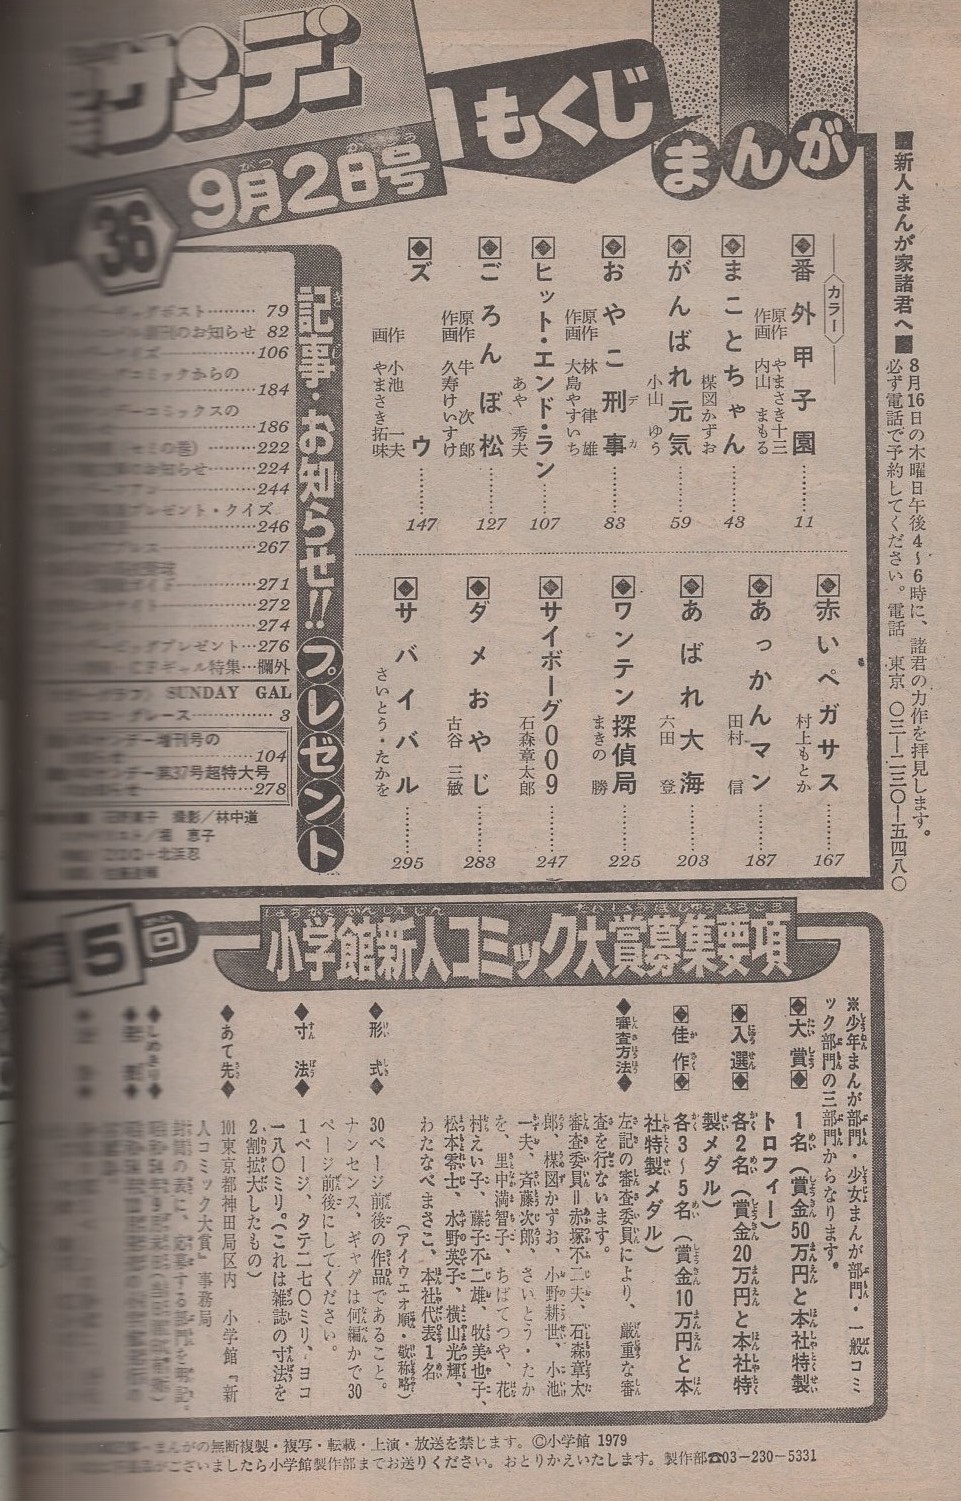 サンデー
もくじ
まんが
9月2日号
36
■新人まんが家諸君へ■
8月16日の木曜日午後4〜6時に、諸君の力作を拝見します。
必ず電話で予約してください。電話 東京 〇三―二三〇―五四八〇
カラー
番外甲子園 原作 やまさき十三 作画 内山まもる 11
まことちゃん 楳図かずお 43
がんばれ元気 小山ゆう 59
おやこ刑事 デカ 原作 林律雄 作画 大島やすいち 83
ヒット・エンド・ラン あや秀夫 107
ごろんぼ松 原作 牛次郎 作画 久寿けいすけ 127
ズウ 作 小池一夫 画 やまさき拓味 147
赤いペガサス 村上もとか 167
あっかんマン 田村信 187
あばれ大海 六田登 203
ワンテン探偵局 まきの勝 225
サイボーグ009 石森章太郎 247
ダメおやじ 古谷三敏 283
サバイバル さいとう・たかを 295
記事・お知らせ!!プレゼント
ポスト 79
のお知らせ 82
クイズ 106
コミックからの
184
コミックスの
186
の巻) 222
お知らせ 224
244
プレゼント・クイズ
246
267
271
272
274
プレゼント 276
ギャル特集…欄外
SUNDAY GAL
グレース 3
サンデー増刊号の
104
サンデー第37号超特大号
278
撮影/林中道
恵子
北浜忍
5回
小学館新人コミック大賞募集要項
※少年まんが部門・少女まんが部門・一般コミ
ック部門の三部門からなります。
◆大賞◆ 1名(賞金50万円と本社特製
トロフィー)
◆入選◆ 各2名(賞金20万円と本社特
製メダル)
◆佳作◆ 各3〜5名(賞金10万円と本
社特製メダル)
◆審査方法◆ 左記の審査委員により、厳重な審
査を行ないます。
審査委員=赤塚不二夫、石森章太
郎、楳図かずお、小野耕世、小池
一夫、斉藤次郎、さいとう・たか
を、里中満智子、ちばてつや、花
村えい子、藤子不二雄、牧美也子、
松本零士、水野英子、横山光輝、
わたなべまさこ、本社代表1名
(アイウエオ順・敬称略)
◆形式◆ 30ページ前後の作品であること。
ナンセンス、ギャグは何編かで30
ページ前後にしてください。
◆寸法◆ 1ページ、タテ二七〇ミリ、ヨコ
一八〇ミリ。(これは雑誌の寸法を
2割拡大したもの)
◆あて先◆ 101東京都神田局区内 小学館『新
人コミック大賞』事務局
封筒の表に、応募する部門を明記。
◆しめきり◆
まんがの無断複製・複写・転載・上演・放送を禁じます。©小学館 1979
ございましたら小学館製作部までお送りください。おとりかえいたします。製作部☎03-230-5331